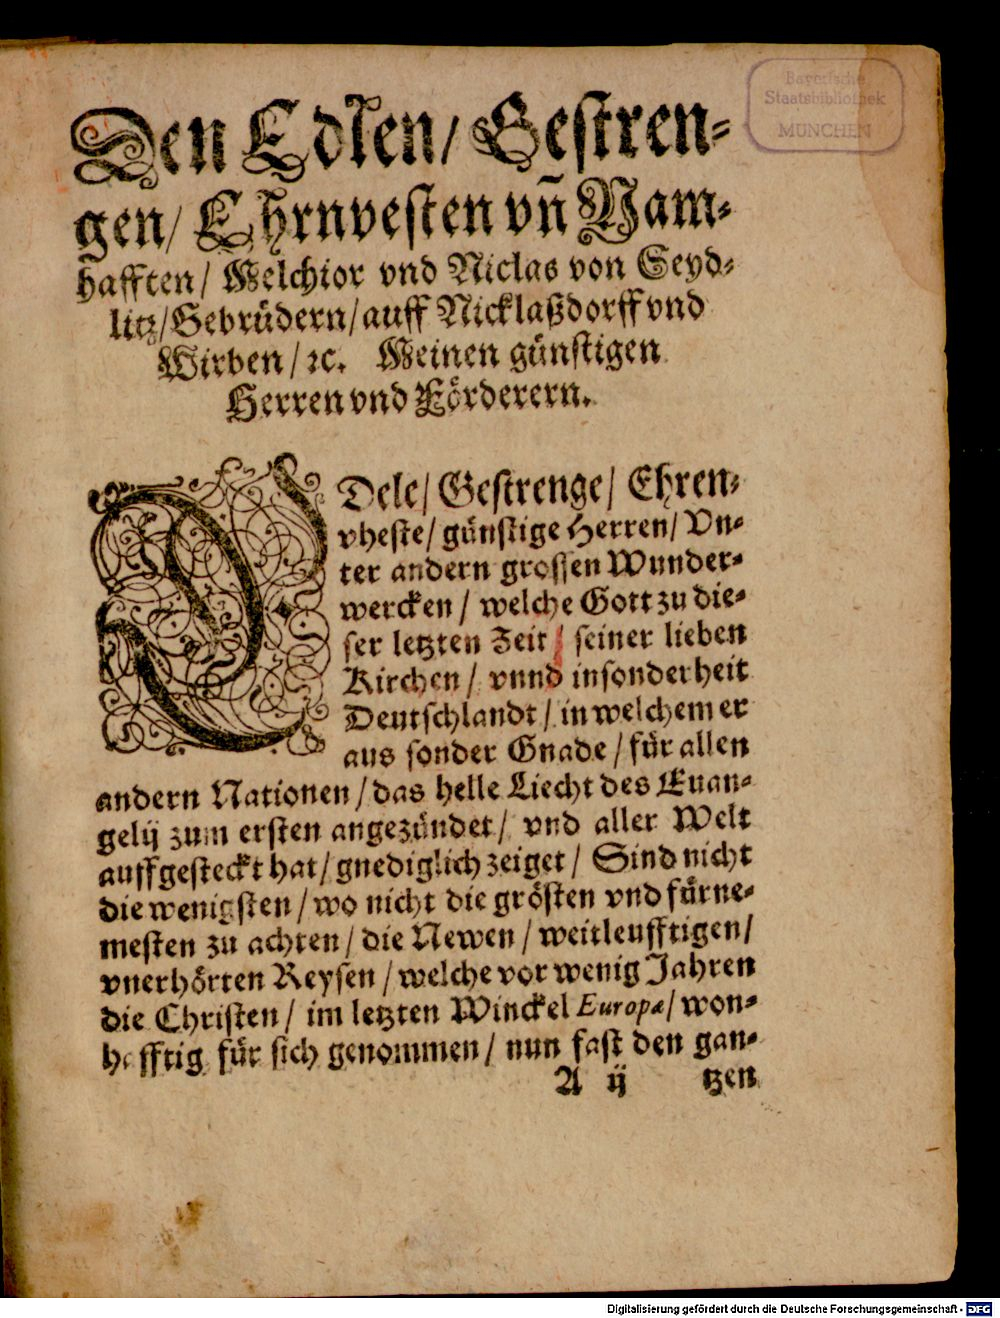 Den Edlen/ Gestren-
gen/ Ehrnvesten vñ Nam-
hafften/ Melchior vnd Niclas von Seyd-
litz/ Gebrüdern/ auff Nicklaßdorff vnd
Wirben/ ꝛc. Meinen günstigen
Herren vnd Förderern.
EDele/ Gestrenge/ Ehren-
vheste/ günstige Herren/ Vn-
ter andern grossen Wunder-
wercken/ welche Gott zu die-
ser letzten Zeit/ seiner lieben
Kirchen/ vnnd insonderheit
Deutschlandt/ in welchem er
aus sonder Gnade/ für allen
andern Nationen/ das helle Liecht des Euan-
gelij zum ersten angezündet/ vnd aller Welt
auffgesteckt hat/ gnediglich zeiget/ Sind nicht
die wenigsten/ wo nicht die grösten vnd fürne-
mesten zu achten/ die Newen/ weitleufftigen/
vnerhörten Reysen/ welche vor wenig Jahren
die Christen/ im letzten Winckel Europæ/ won-
hafftig für sich genommen/ nun fast den gan-
A ij tzen
Bayerische
Staatsbibliothek
MÜNCHEN
Digitalisierung gefördert durch die Deutsche Forschungsgemeinschaft - DFG